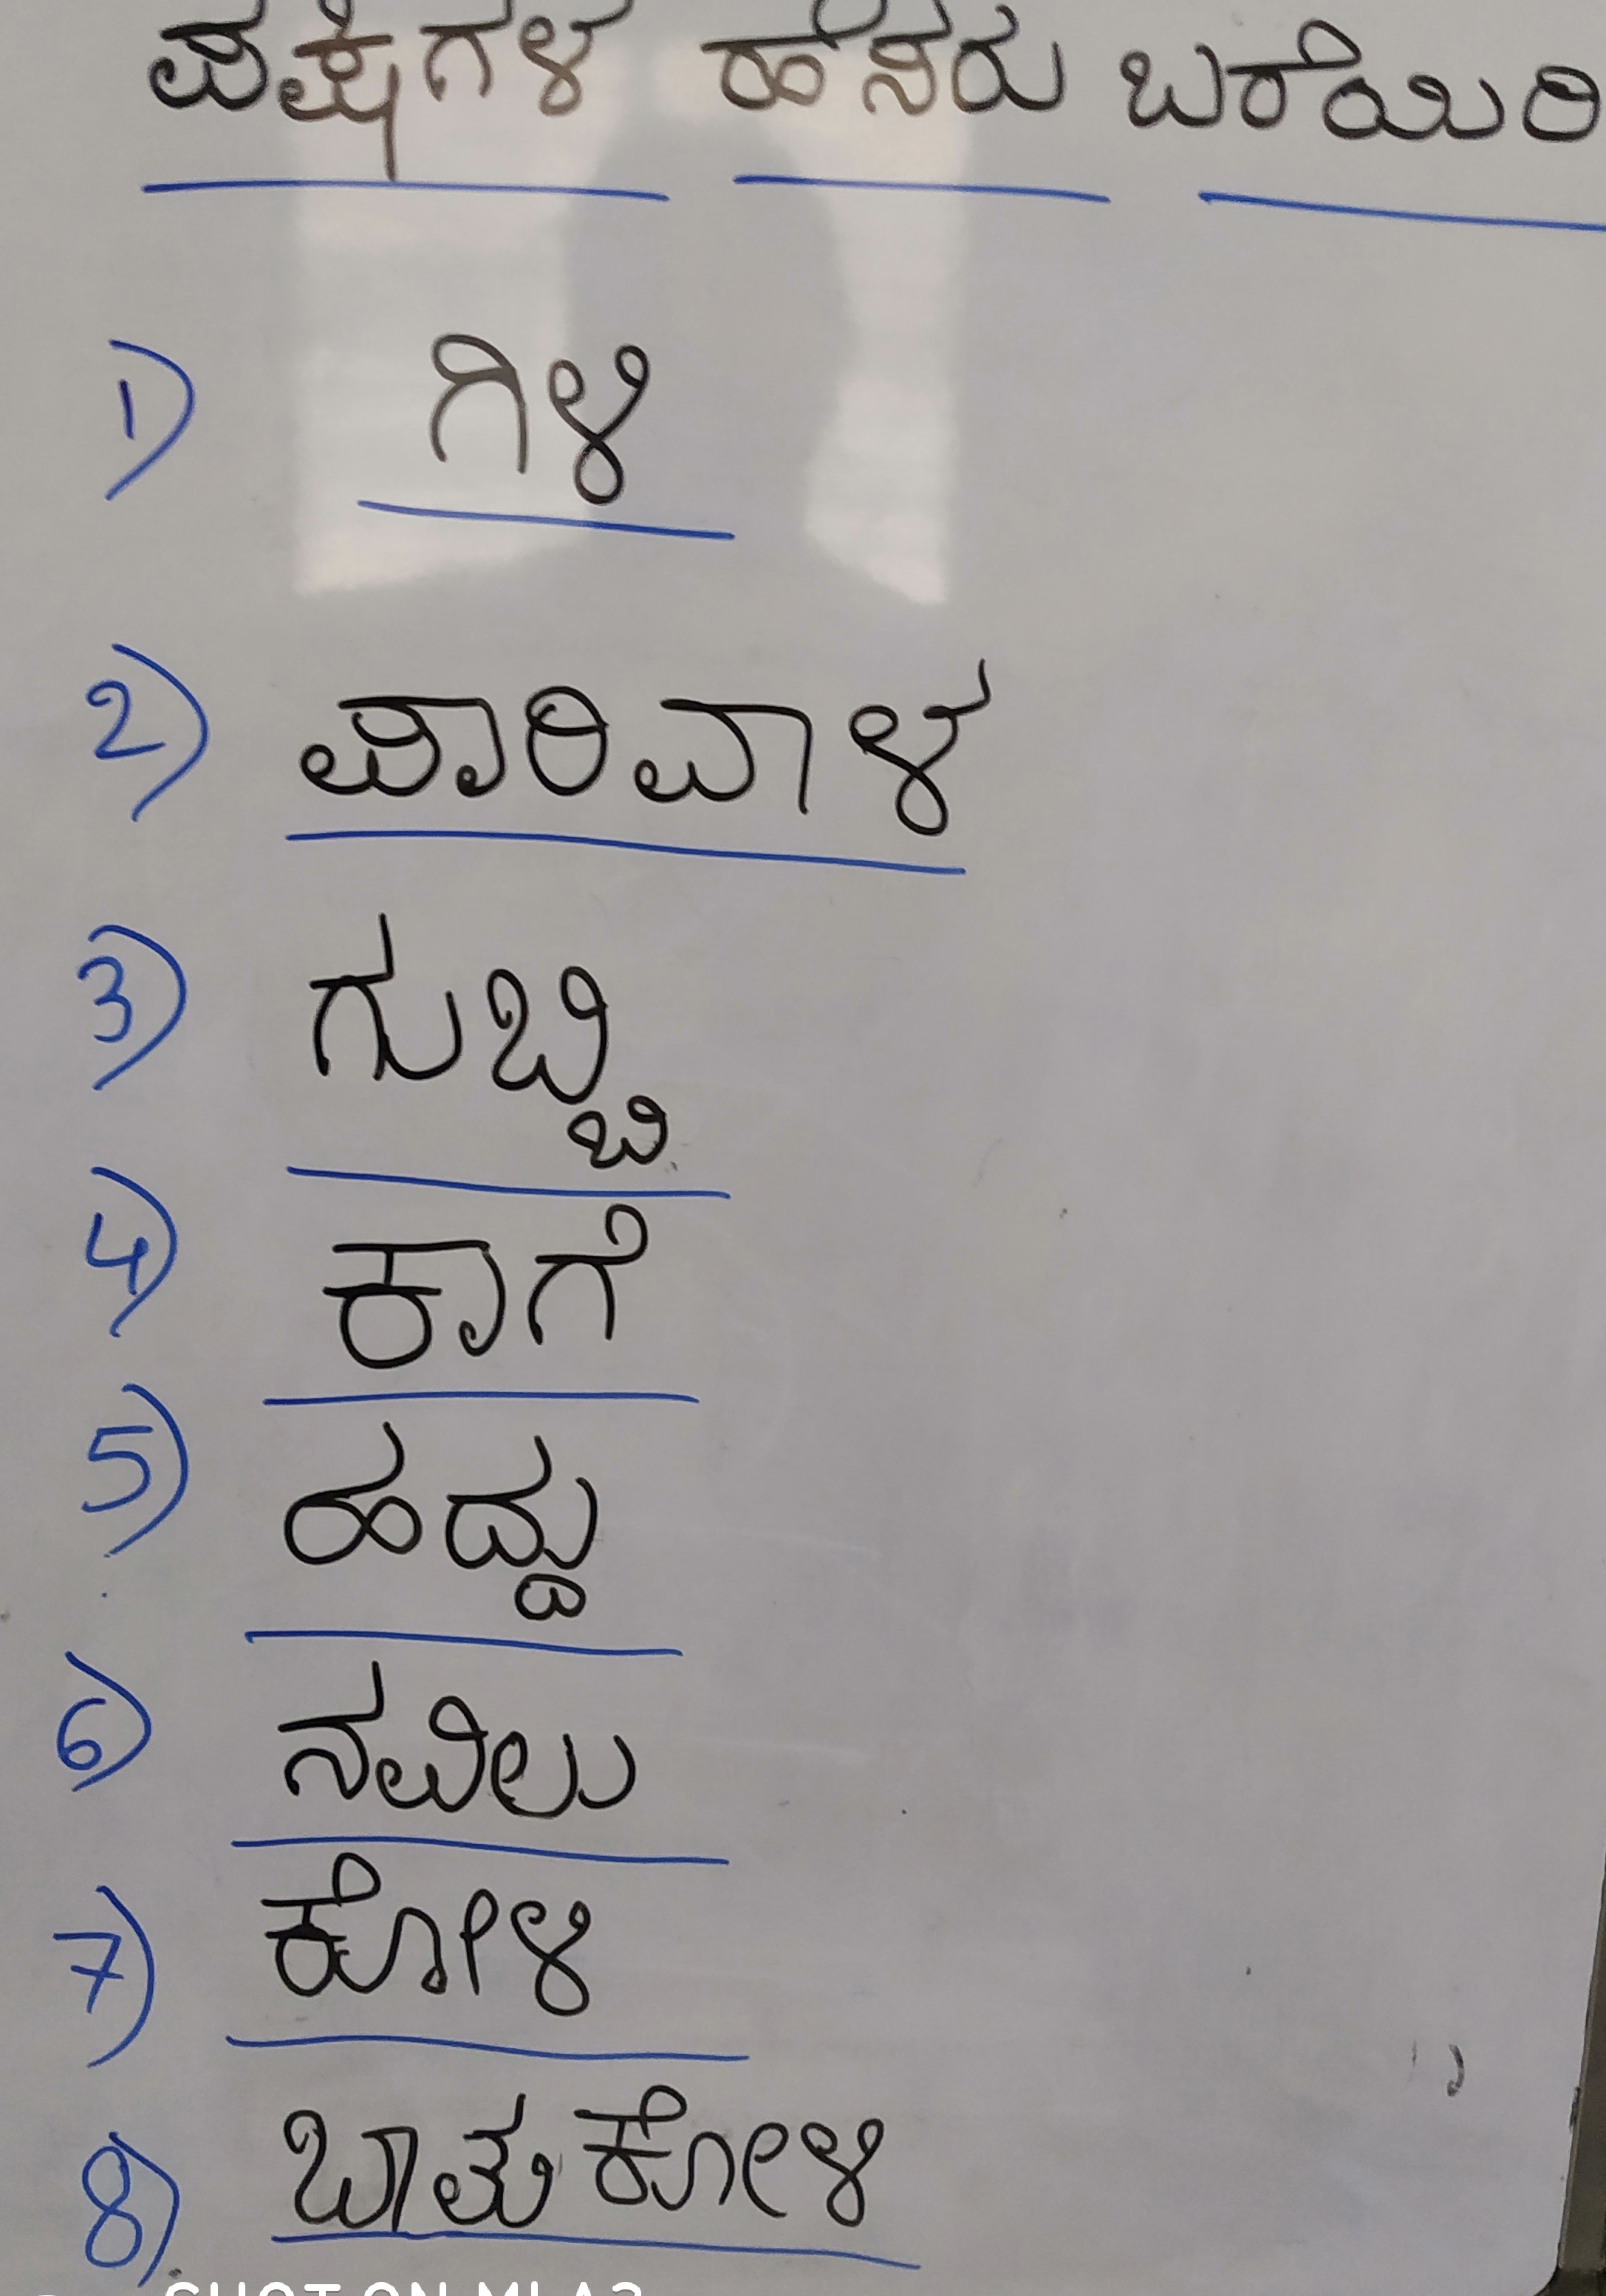 ಪಕ್ಷಿಗಳ ಹೆಸರು ಬರೆಯಿರಿ
1) ಗಿಳಿ
2) ಪಾರಿವಾಳ
3) ಗುಬ್ಬಿ
4) ಕಾಗೆ
5) ಹದ್ದು
6) ನವಿಲು
7) ಕೋಳಿ
8) ಬಾತುಕೋಳಿ
SHOT ON MI A3